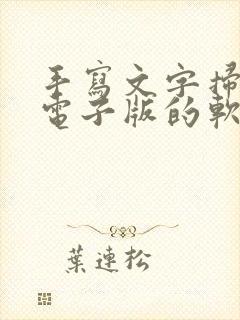 手寫文字掃
電子版的軟
葉連松